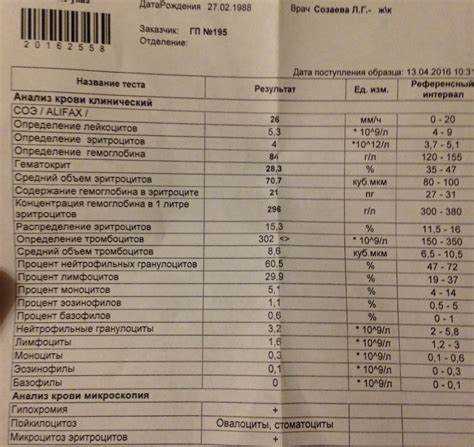 ДатаРождения 27.02.1988
Врач Созаева Л.Г.- ж\к
Заказчик: ГП №195
20162558
Отделение:
Дата поступления образца: 13.04.2016 10:31
Название теста Результат Ед. изм. Референсный интервал
Анализ крови клинический
СОЭ / ALIFAX / 26 мм/ч 0 - 20
Определение лейкоцитов 5,3 * 10^9/л 4 - 9
Определение эритроцитов 4 * 10^12/л 3,7 - 5,1
Определение гемоглобина 84 г/л 120 - 155
Гематокрит 28,3 % 35 - 47
Средний объем эритроцитов 70,7 куб.мкм 80 - 100
Содержание гемоглобина в эритроците 21 пг 27 - 31
Концентрация гемоглобина в 1 литре эритроцитов 296 г/л 300 - 380
Распределение эритроцитов 15,3 % 11,5 - 16
Определение тромбоцитов 302 <> * 10^9/л 150 - 350
Средний объем тромбоцитов 8,6 куб.мкм 6,5 - 10,5
Процент нейтрофильных гранулоцитов 60,5 % 47 - 72
Процент лимфоцитов 29,9 % 19 - 37
Процент моноцитов 5,1 % 4 - 14
Процент эозинофилов 1,1 % 0,5 - 5
Процент базофилов 0,6 % 0 - 1
Нейтрофильные гранулоциты 3,2 * 10^9/л 2 - 5,8
Лимфоциты 1,6 * 10^9/л 1,2 - 3
Моноциты 0,3 * 10^9/л 0,1 - 0,6
Эозинофилы 0,1 * 10^9/л 0 - 0,3
Базофилы 0 * 10^9/л 0 - 0,1
Анализ крови микроскопия
Гипохромия +
Пойкилоцитоз Овалоциты, стоматоциты
Микроцитоз эритроцитов +